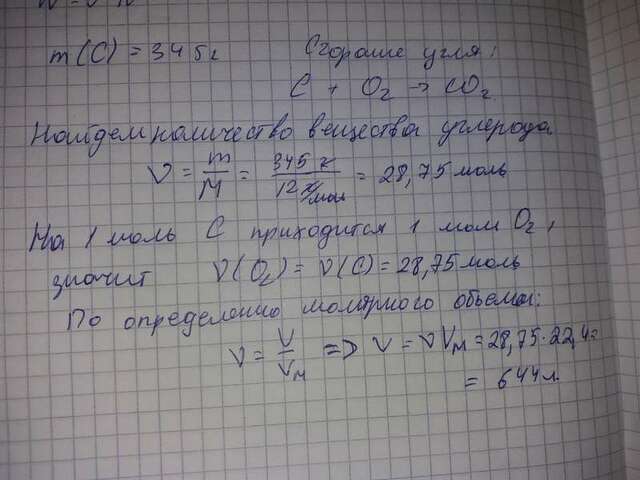 m(C) = 345г
Сгорание угля:
C + O₂ → CO₂
Найдем количество вещества углерода
ν = m/M = 345 г / 12 г/моль = 28,75 моль
На 1 моль C приходится 1 моль O₂,
значит ν(O₂) = ν(C) = 28,75 моль
По определению молярного объема:
ν = V/Vм => V = νVм = 28,75·22,4=
= 644л